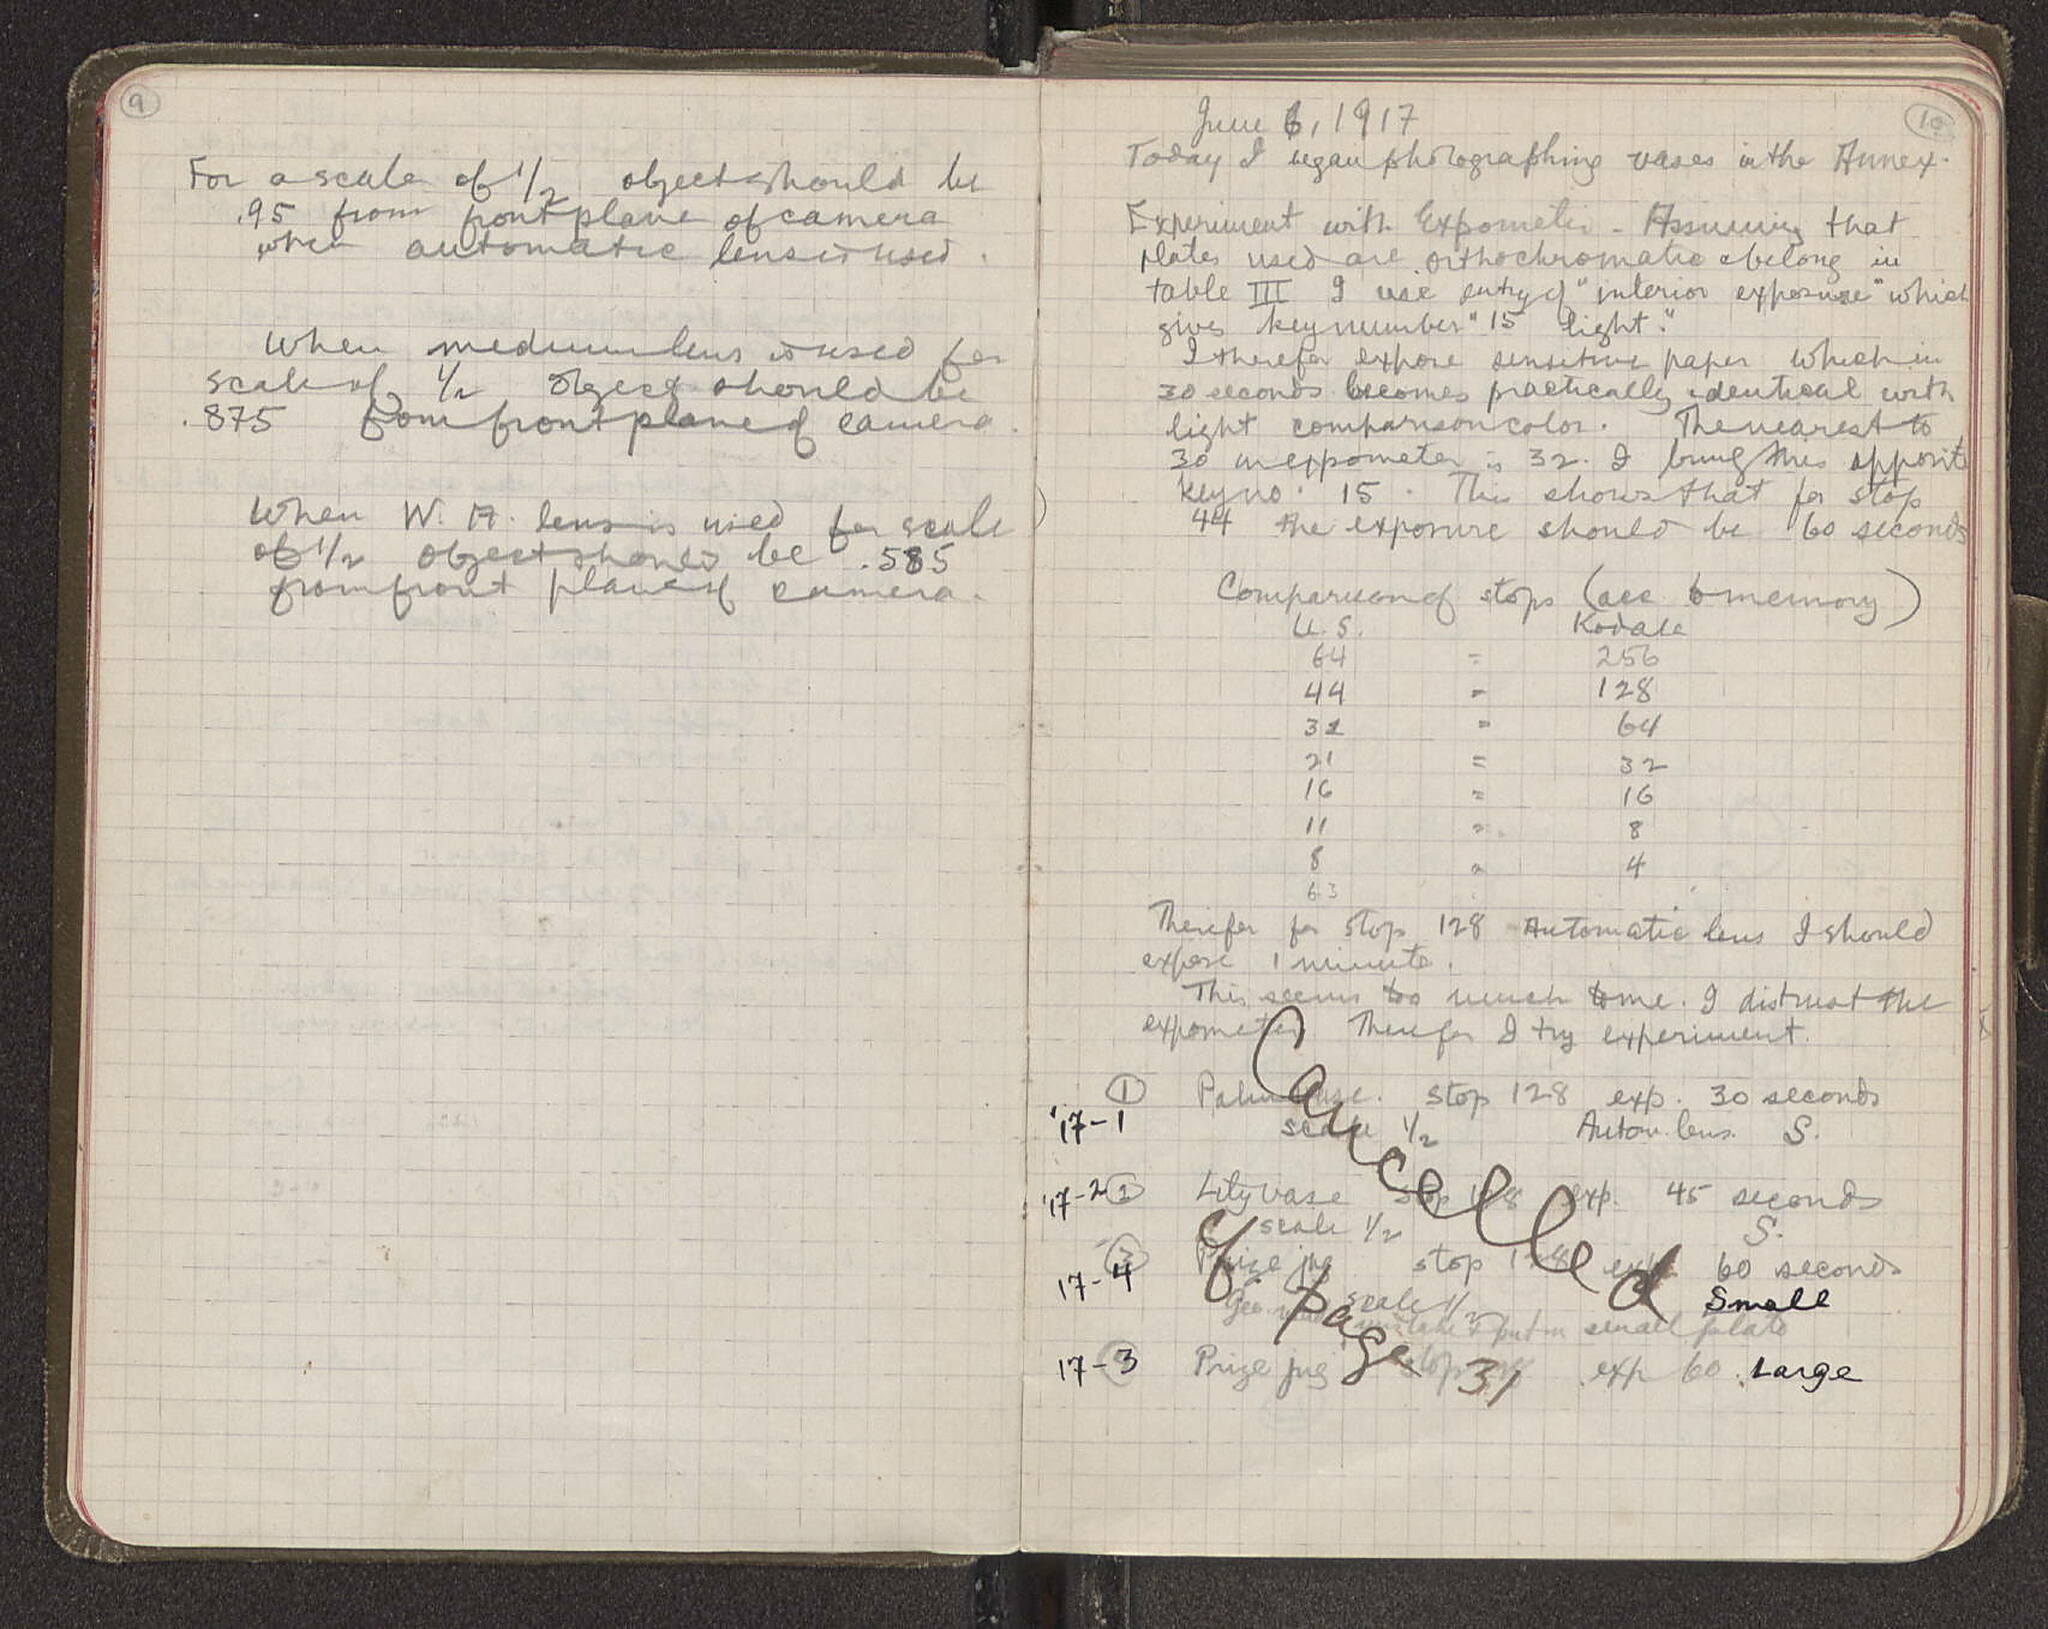 9
For a scale of 1/2 object should be
.95 from front plane of camera
when automatic lens is used.
When medium lens is used for
scale of 1/2 object should be
.875 from front plane of camera.
When W. A. lens is used for scale
of 1/2 object should be .585
from front plane of camera.
10
June 6, 1917
Today I began photographing vases in the Annex.
Experiment with Expometer - Assuming that
plates used are orthochromatic & belong in
table III I use entry of "interior exposure" which
gives key number "15 light."
I therefor expose sensitive paper which in
30 seconds becomes practically identical with
light comparison color. The nearest to
30 in expometer is 32. I bring this opposite
key no. 15. This shows that for stop
44 the exposure should be 60 seconds
Comparison of stops (acc to memory)
U.S. Kodak
64 = 256
44 = 128
32 = 64
21 = 32
16 = 16
11 " 8
8 " 4
63
Therefor for stop 128 Automatic lens I should
expose 1 minute.
This seems too much to me. I distrust the
expometer. Therefor I try experiment.
1 Palm vase. stop 128 exp. 30 seconds
'17-1 scale 1/2 Autom. lens. S.
'17-2 2 Lily vase stop 128 exp. 45 seconds
scale 1/2 S.
3 Prize jug stop 128 exp. 60 seconds
17-4 scale 1/2 Small
Geo. mistake & put in small plate
17-3 Prize jug stop exp 60. Large
Cancelled
cf. page 31